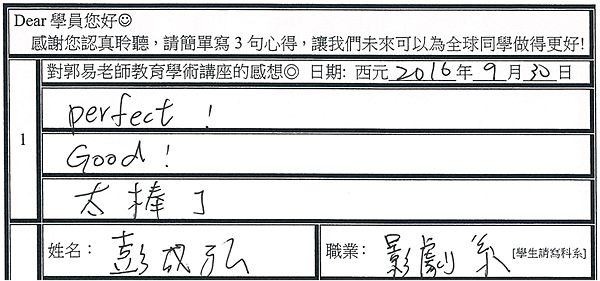 Dear 學員您好☺
感謝您認真聆聽，請簡單寫 3 句心得，讓我們未來可以為全球同學做得更好!
對郭易老師教育學術講座的感想◎ 日期: 西元 2016 年 9 月 30 日
1
perfect !
Good !
太棒了
姓名： 彭成弘 職業： 影劇系 [學生請寫科系]